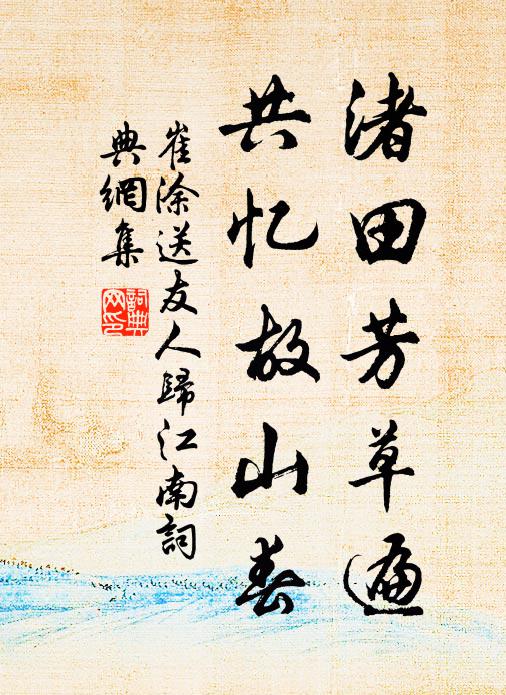 渚田芳草遍
共忆故山春
崔涂送友人歸江南詞
典網集
詞典
网印